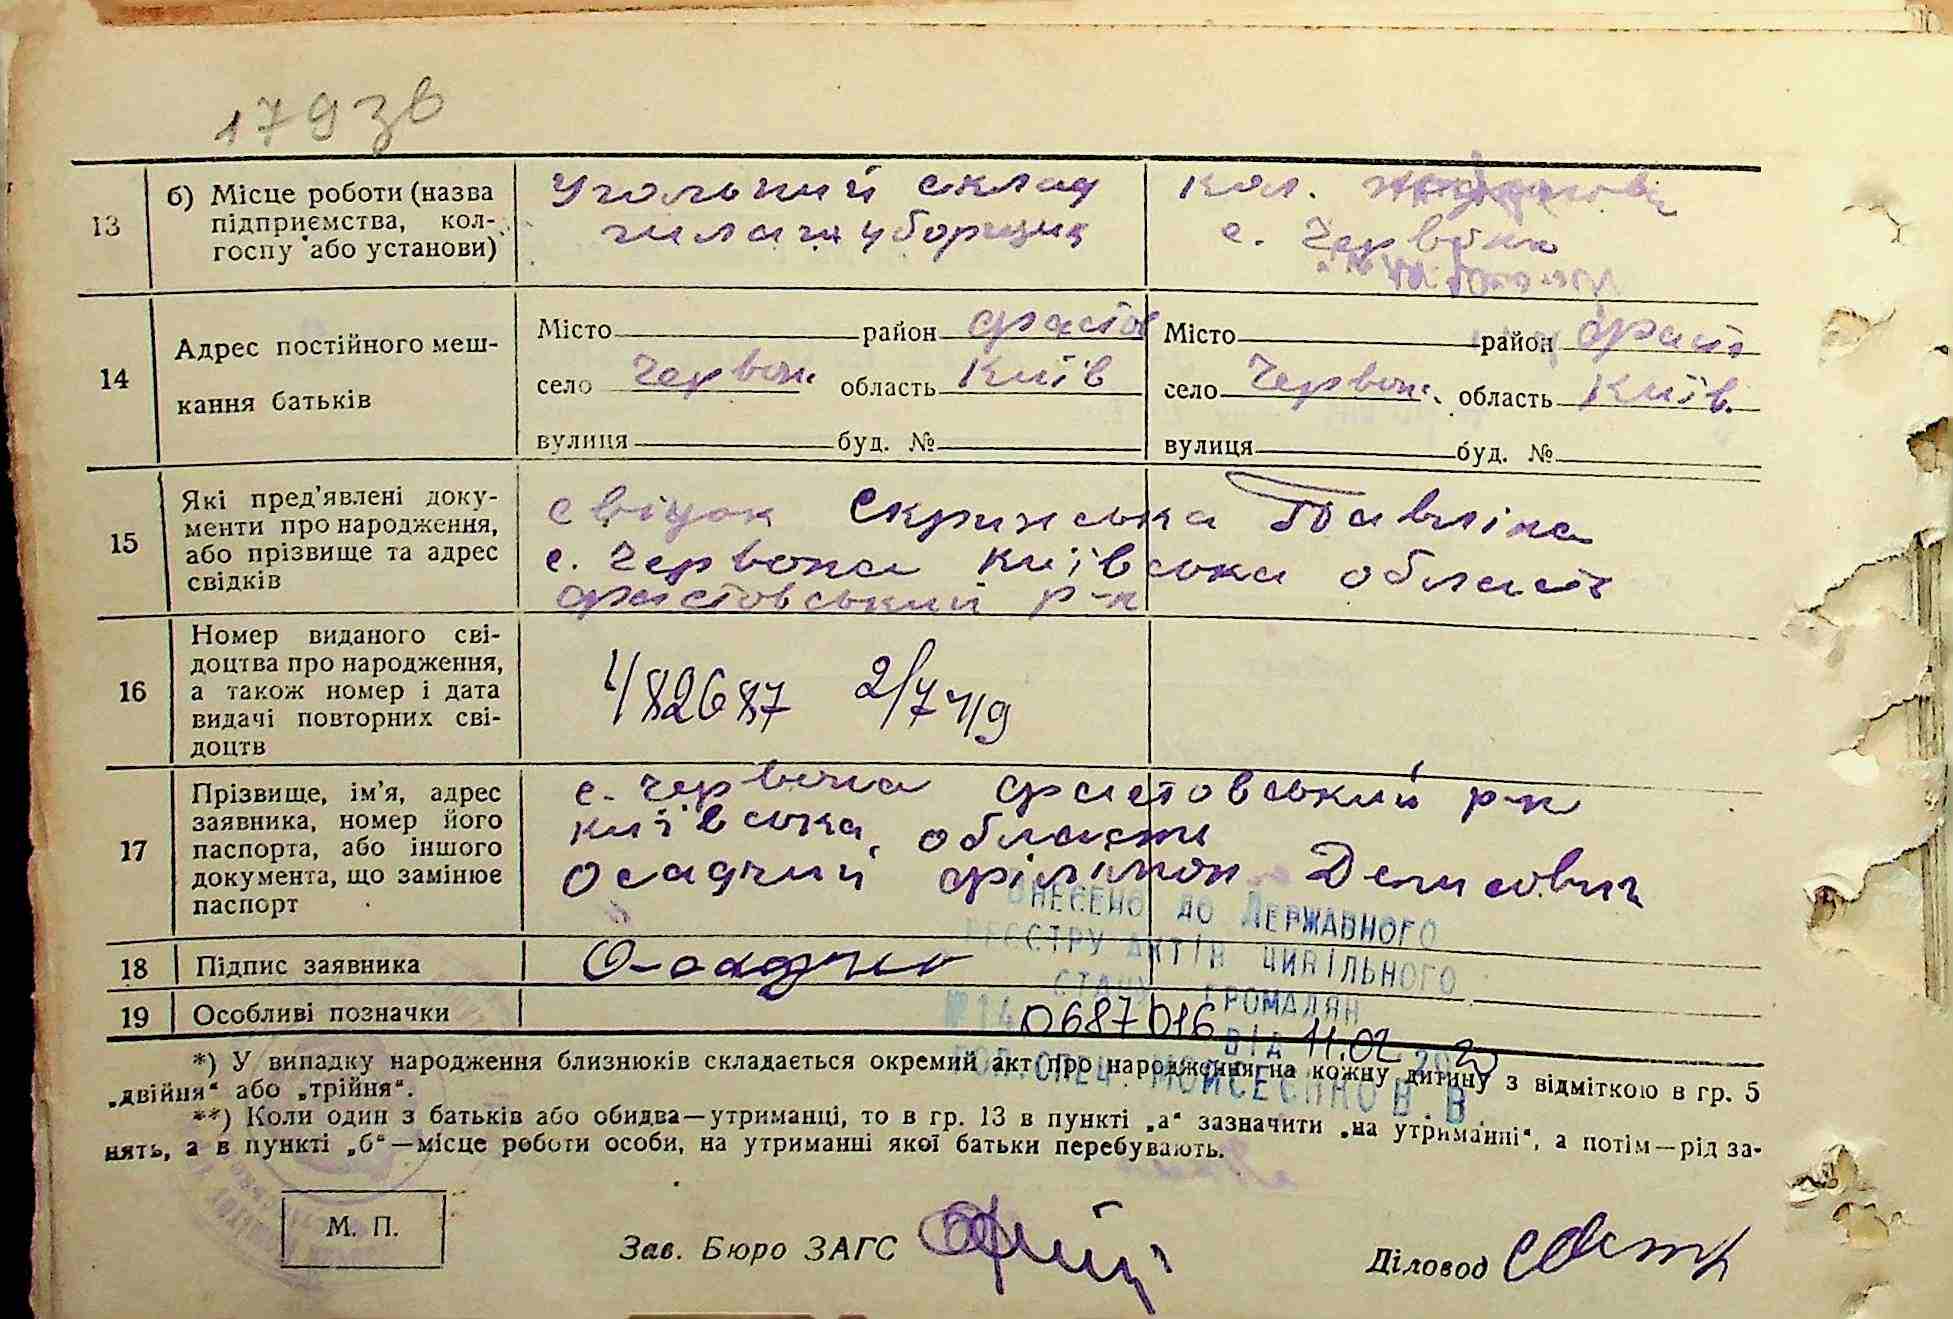 179 зв
13
б) Місце роботи (назва
підприємства, кол-
госпу або установи)
Угольний склад
уборщик
кол.
с. Червона
14
Адрес постійного меш-
кання батьків
Місто район Фастов
село Червон. область Київ
вулиця буд. №
Місто район Фаст
село Червон. область Київ.
вулиця буд. №
15
Які пред'явлені доку-
менти про народження,
або прізвище та адрес
свідків
свідок Скринська Павліна
с. Червона Київська область
фастовський р-н
16
Номер виданого сві-
доцтва про народження,
а також номер і дата
видачі повторних сві-
доцтв
482687 2/7 49
17
Прізвище, ім'я, адрес
заявника, номер його
паспорта, або іншого
документа, що замінює
паспорт
с. Червона фастовський р-н
київська область
Осадчий Філімон Денисович
18
Підпис заявника
Осадчий
19
Особливі позначки
ВНЕСЕНО ДО ДЕРЖАВНОГО
РЕЄСТРУ АКТІВ ЦИВІЛЬНОГО
СТАНУ ГРОМАДЯН
№ 140687016 ВІД 11.02
ГОЛ. СПЕЦ. МОЙСЕЄНКО В.В
*) У випадку народження близнюків складається окремий акт про народження на кожну дитину з відміткою в гр. 5
„двійня“ або „трійня“.
**) Коли один з батьків або обидва—утриманці, то в гр. 13 в пункті „а“ зазначити „на утриманні“, а потім—рід за-
нять, а в пункті „б“—місце роботи особи, на утриманні якої батьки перебувають.
М. П.
Зав. Бюро ЗАГС
Діловод